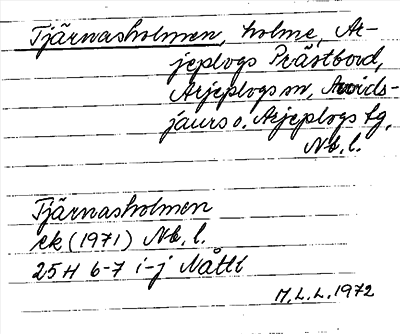 Tjärnasholmen, holme, Ar-
jeplogs Prästbord,
Arjeplogs sn, Arvids-
jaurs o. Arjeplogs tg,
Nb. l.
Tjärnasholmen
ek (1971) Nb. l.
25H 6-7 i-j Nåtti
M.L.L. 1972